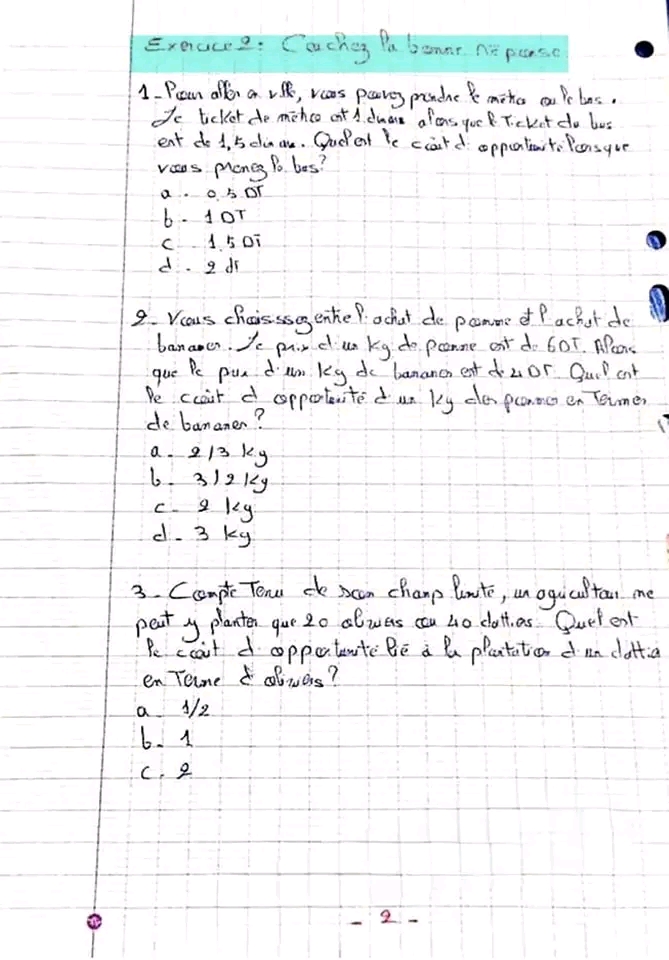 Exercice 2: Cochez la bonne réponse
1- Pour aller en ville, vous pouvez prendre le métro ou le bus.
Le ticket de métro est 1 dinar alors que le Ticket du bus
est de 1,5 dinars. Quel est le coût d'opportunité lorsque
vous prenez le bus?
a - 0,5 DT
b - 1 DT
c - 1,5 DT
d - 2 dt
2- Vous choisissez entre l'achat de pomme et l'achat de
bananes. Le prix d'un Kg de pomme est de 6DT. Alors
que le prix d'un Kg de bananes est de 4 DT. Quel est
le coût d'opportunité d'un Kg des pommes en Termes
de bananes?
a - 2/3 kg
b - 3/2 kg
c - 2 kg
d - 3 kg
3- Compte Tenu de son champ limité, un agriculteur ne
peut y planter que 20 oliviers ou 40 dattiers. Quel est
le coût d'opportunité lié à la plantation d'un dattier
en Terme d'oliviers?
a - 1/2
b - 1
c - 2
- 2 -